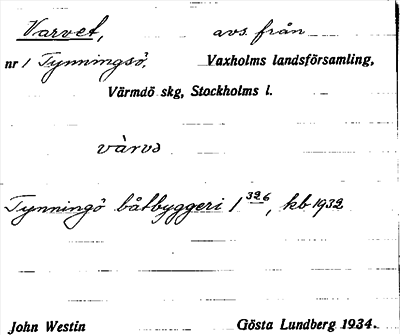 Varvet, avs. från
nr 1 Tynningsö, Vaxholms landsförsamling,
Värmdö skg, Stockholms l.
varvə
Tynningö båtbyggeri 1 326, kb 1932
John Westin Gösta Lundberg 1934.